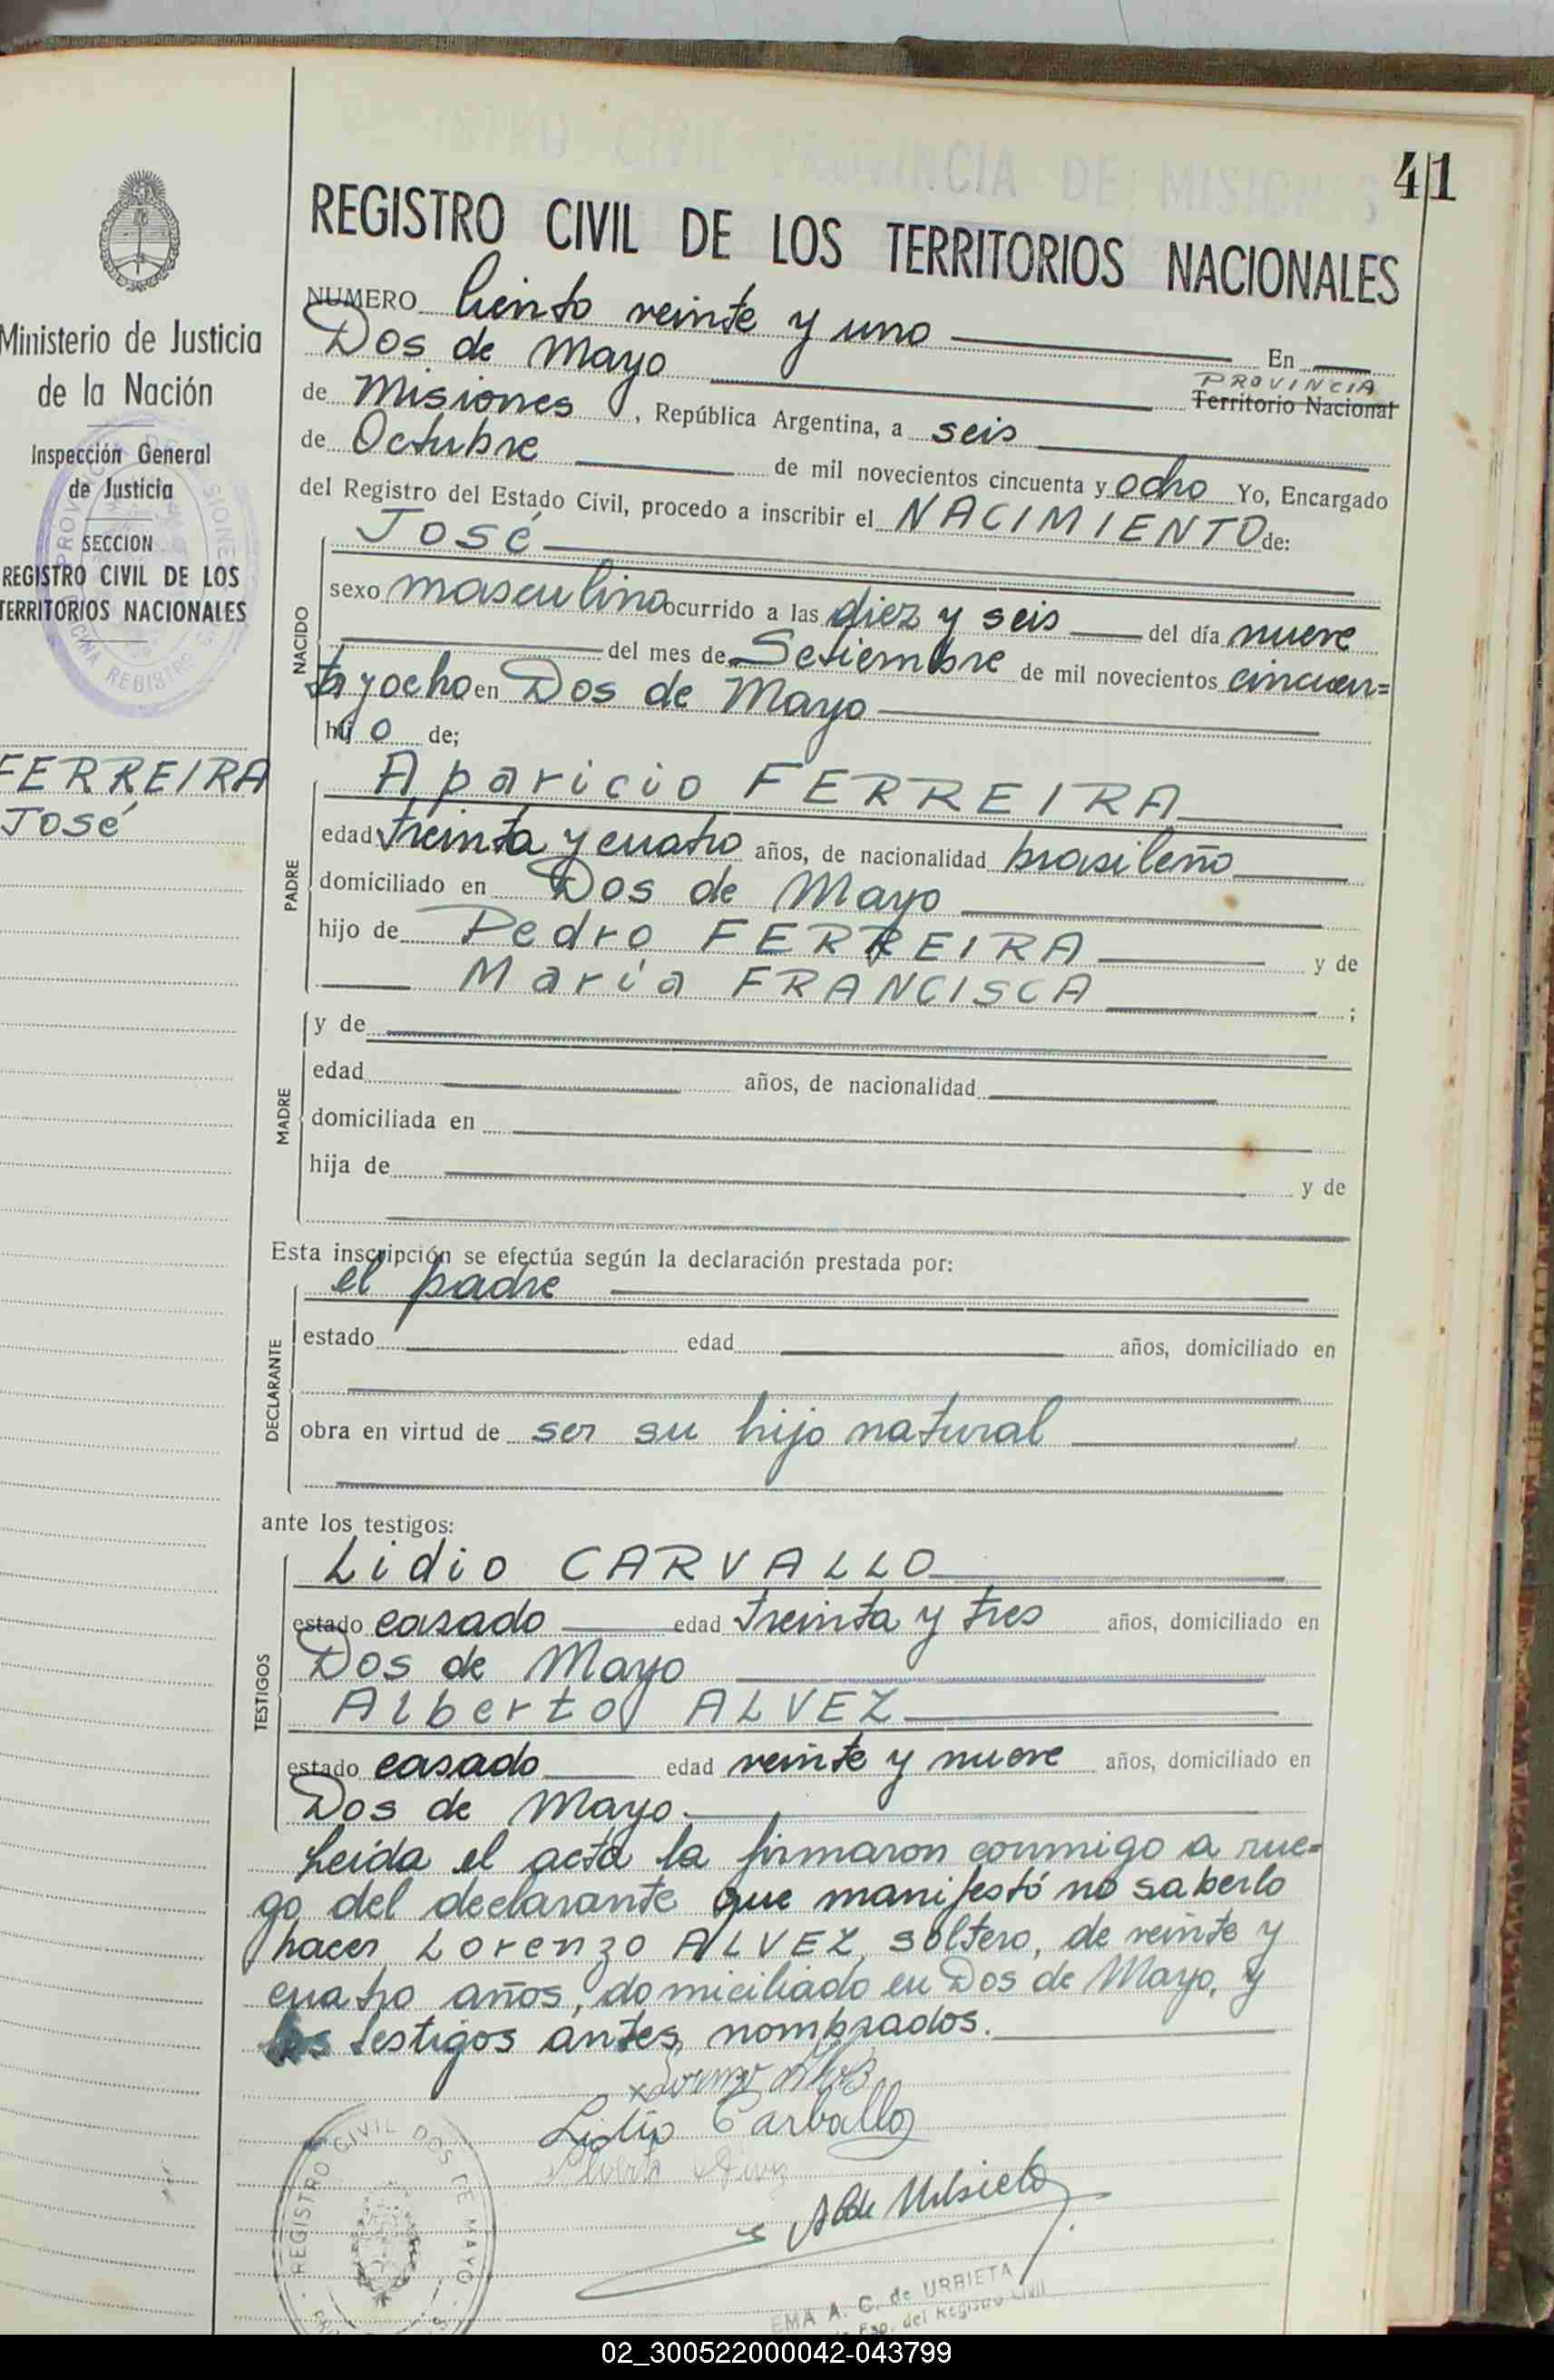 41
REGISTRO CIVIL DE LOS TERRITORIOS NACIONALES
Ministerio de Justicia
de la Nación
Inspección General
de Justicia
SECCION
REGISTRO CIVIL DE LOS
TERRITORIOS NACIONALES
FERREIRA
José
NUMERO Ciento veinte y uno En
Dos de Mayo PROVINCIA
Territorio Nacional
de Misiones, República Argentina, a seis
de Octubre de mil novecientos cincuenta y ocho Yo, Encargado
del Registro del Estado Civil, procedo a inscribir el NACIMIENTO de:
NACIDO
José
sexo masculino ocurrido a las diez y seis del día nueve
del mes de Setiembre de mil novecientos cincuen=
ta y ocho en Dos de Mayo
hijo de;
PADRE
Aparicio FERREIRA
edad treinta y cuatro años, de nacionalidad brasileño
domiciliado en Dos de Mayo
hijo de Pedro FERREIRA y de
María FRANCISCA ;
MADRE
y de
edad años, de nacionalidad
domiciliada en
hija de y de
Esta inscripción se efectúa según la declaración prestada por:
DECLARANTE
el padre
estado edad años, domiciliado en
obra en virtud de ser su hijo natural
ante los testigos:
TESTIGOS
Lidio CARVALLO
estado casado edad treinta y tres años, domiciliado en
Dos de Mayo
Alberto ALVEZ
estado casado edad veinte y nueve años, domiciliado en
Dos de Mayo
Leída el acta la firmaron conmigo a rue=
go del declarante que manifestó no saberlo
hacer Lorenzo ALVEZ, soltero, de veinte y
cuatro años, domiciliado en Dos de Mayo, y
los testigos antes nombrados.
Lidio Carballo
REGISTRO CIVIL DOS DE MAYO
EMA A. C. de URBIETA
del Registro Civil
02_300522000042-043799